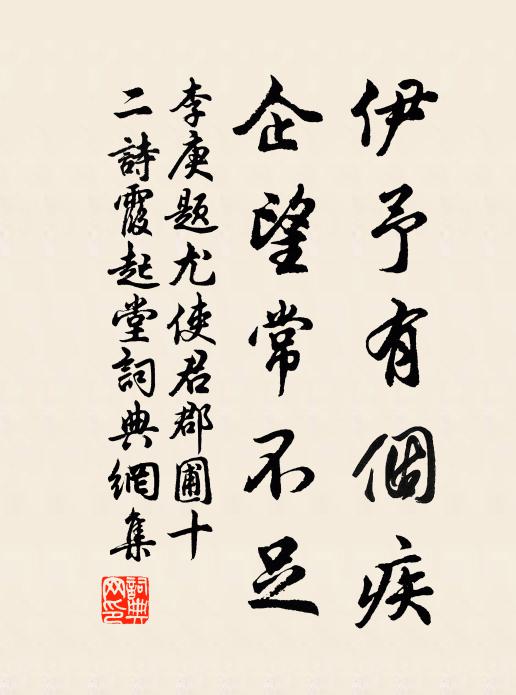 伊予有個疾
企望常不足
李庚題尤使君郡圃十
二詩霞起堂詞典網集
詞典網印